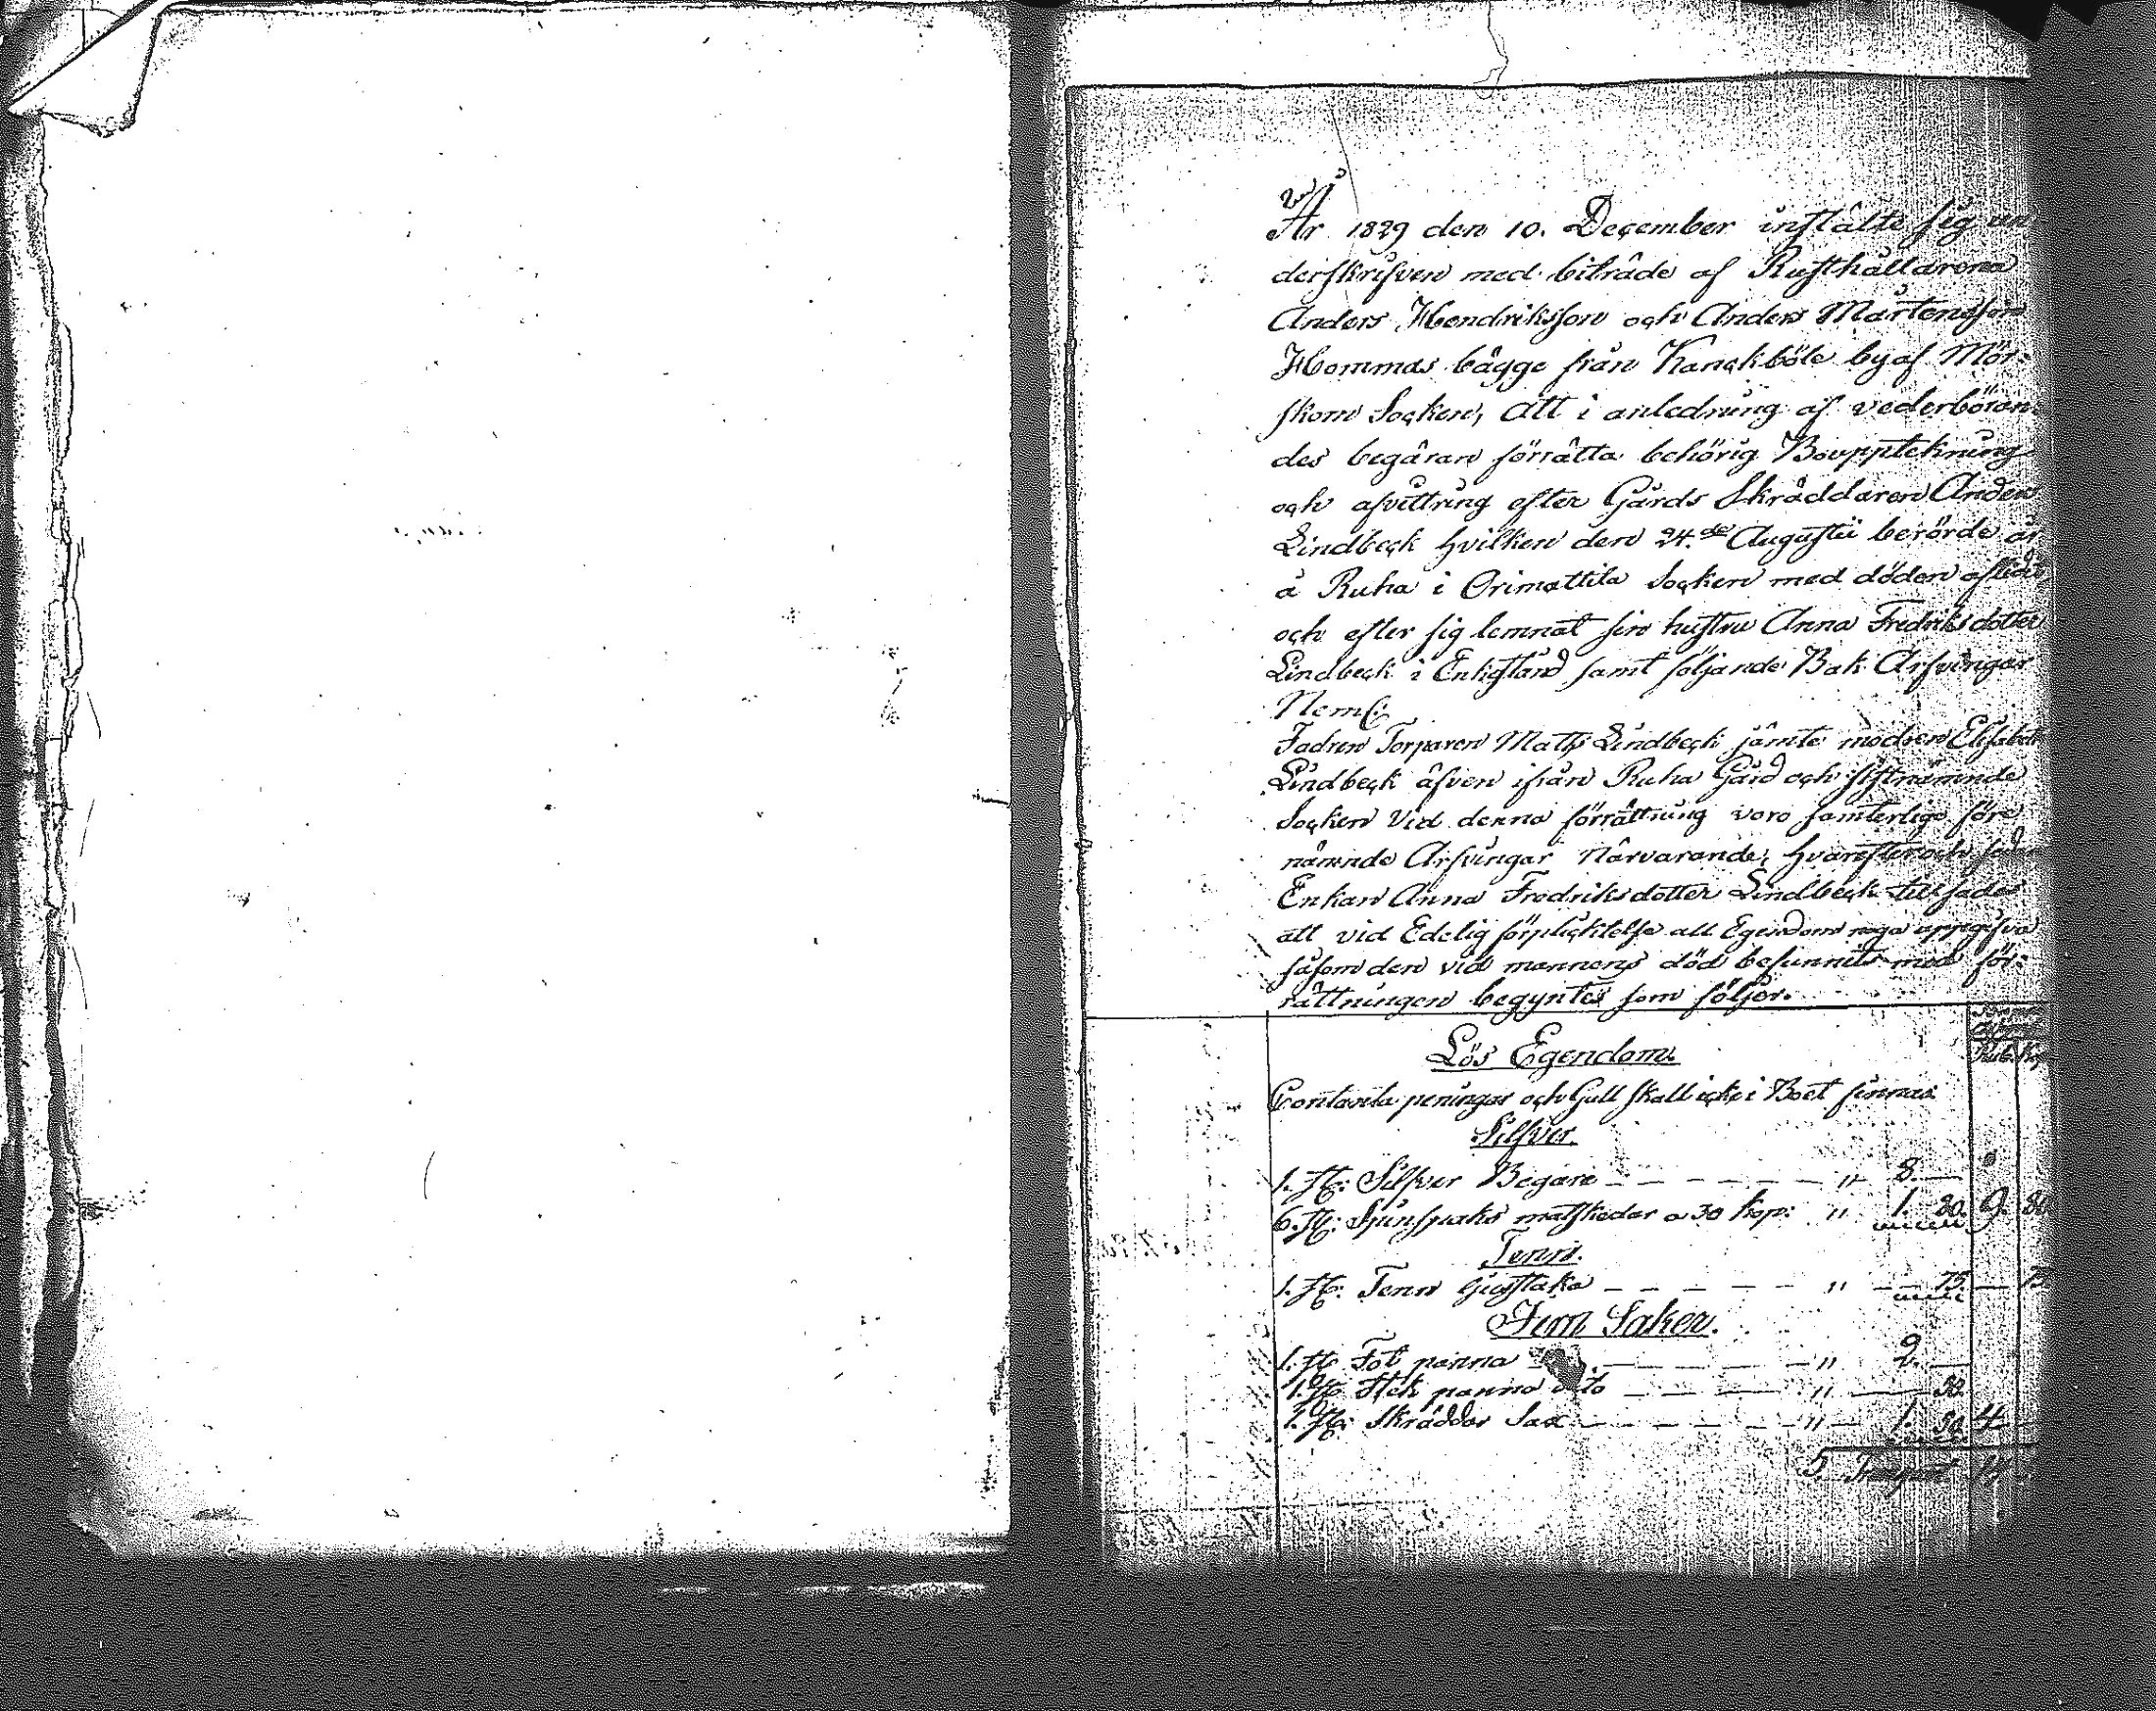 År 1829 den 10. December instälte sig un
derskrifven med biträde af Rusthållarena
Anders Hendriksson och Anders Mårtensson
Hommas bägge från Kanckböle by af Mör-
skom Socken, att i anledning af vederböran-
des begäran förrätta behörig Bouppteckning
och afvittring efter Gårds Skräddaren Anders
Lindbeck hvilken den 24.de Augustii berörde år
å Ruha i Orimattila Socken med döden afledit
och efter sig lemnat sin hustru Anna Fredriksdotter
Lindbeck i Enkestånd samt följande Bak Arfvingar
Neml:
Fadren Torparen Matts Lindbeck jämte modren Elisabeth
Lindbeck äfven ifrån Ruha Gård och sistnämnde
Socken Vid denna förrättning voro samterlige före
nämnde Arfvingar Närvarande, hvarefter och
Enkan Anna Fredriksdotter Lindbeck tillsades
att vid Edelig förplicktelse all Egendom noga uppgifva
såsom den vid mannens död befunnits med för-
rättningen begyntes som följer.
Lös Egendom.
Rub. Kop
Contanta peningar och Gull skall icke i Boet finnas
Silfver.
1. St: Silfver Begare — — — " 8. —
6. St: matskedar a 30 kop: " 1. 80. 9. 80
Tenn.
1. St: Tenn ljusstaka — — — " — 75. — 75
Jern Saker.
1. St Fot panna — — " 2. —
1. St Stek panna dito — — " — 50.
1. St: Skräddar Sax — — — " 1. 50. 4 —
Transport